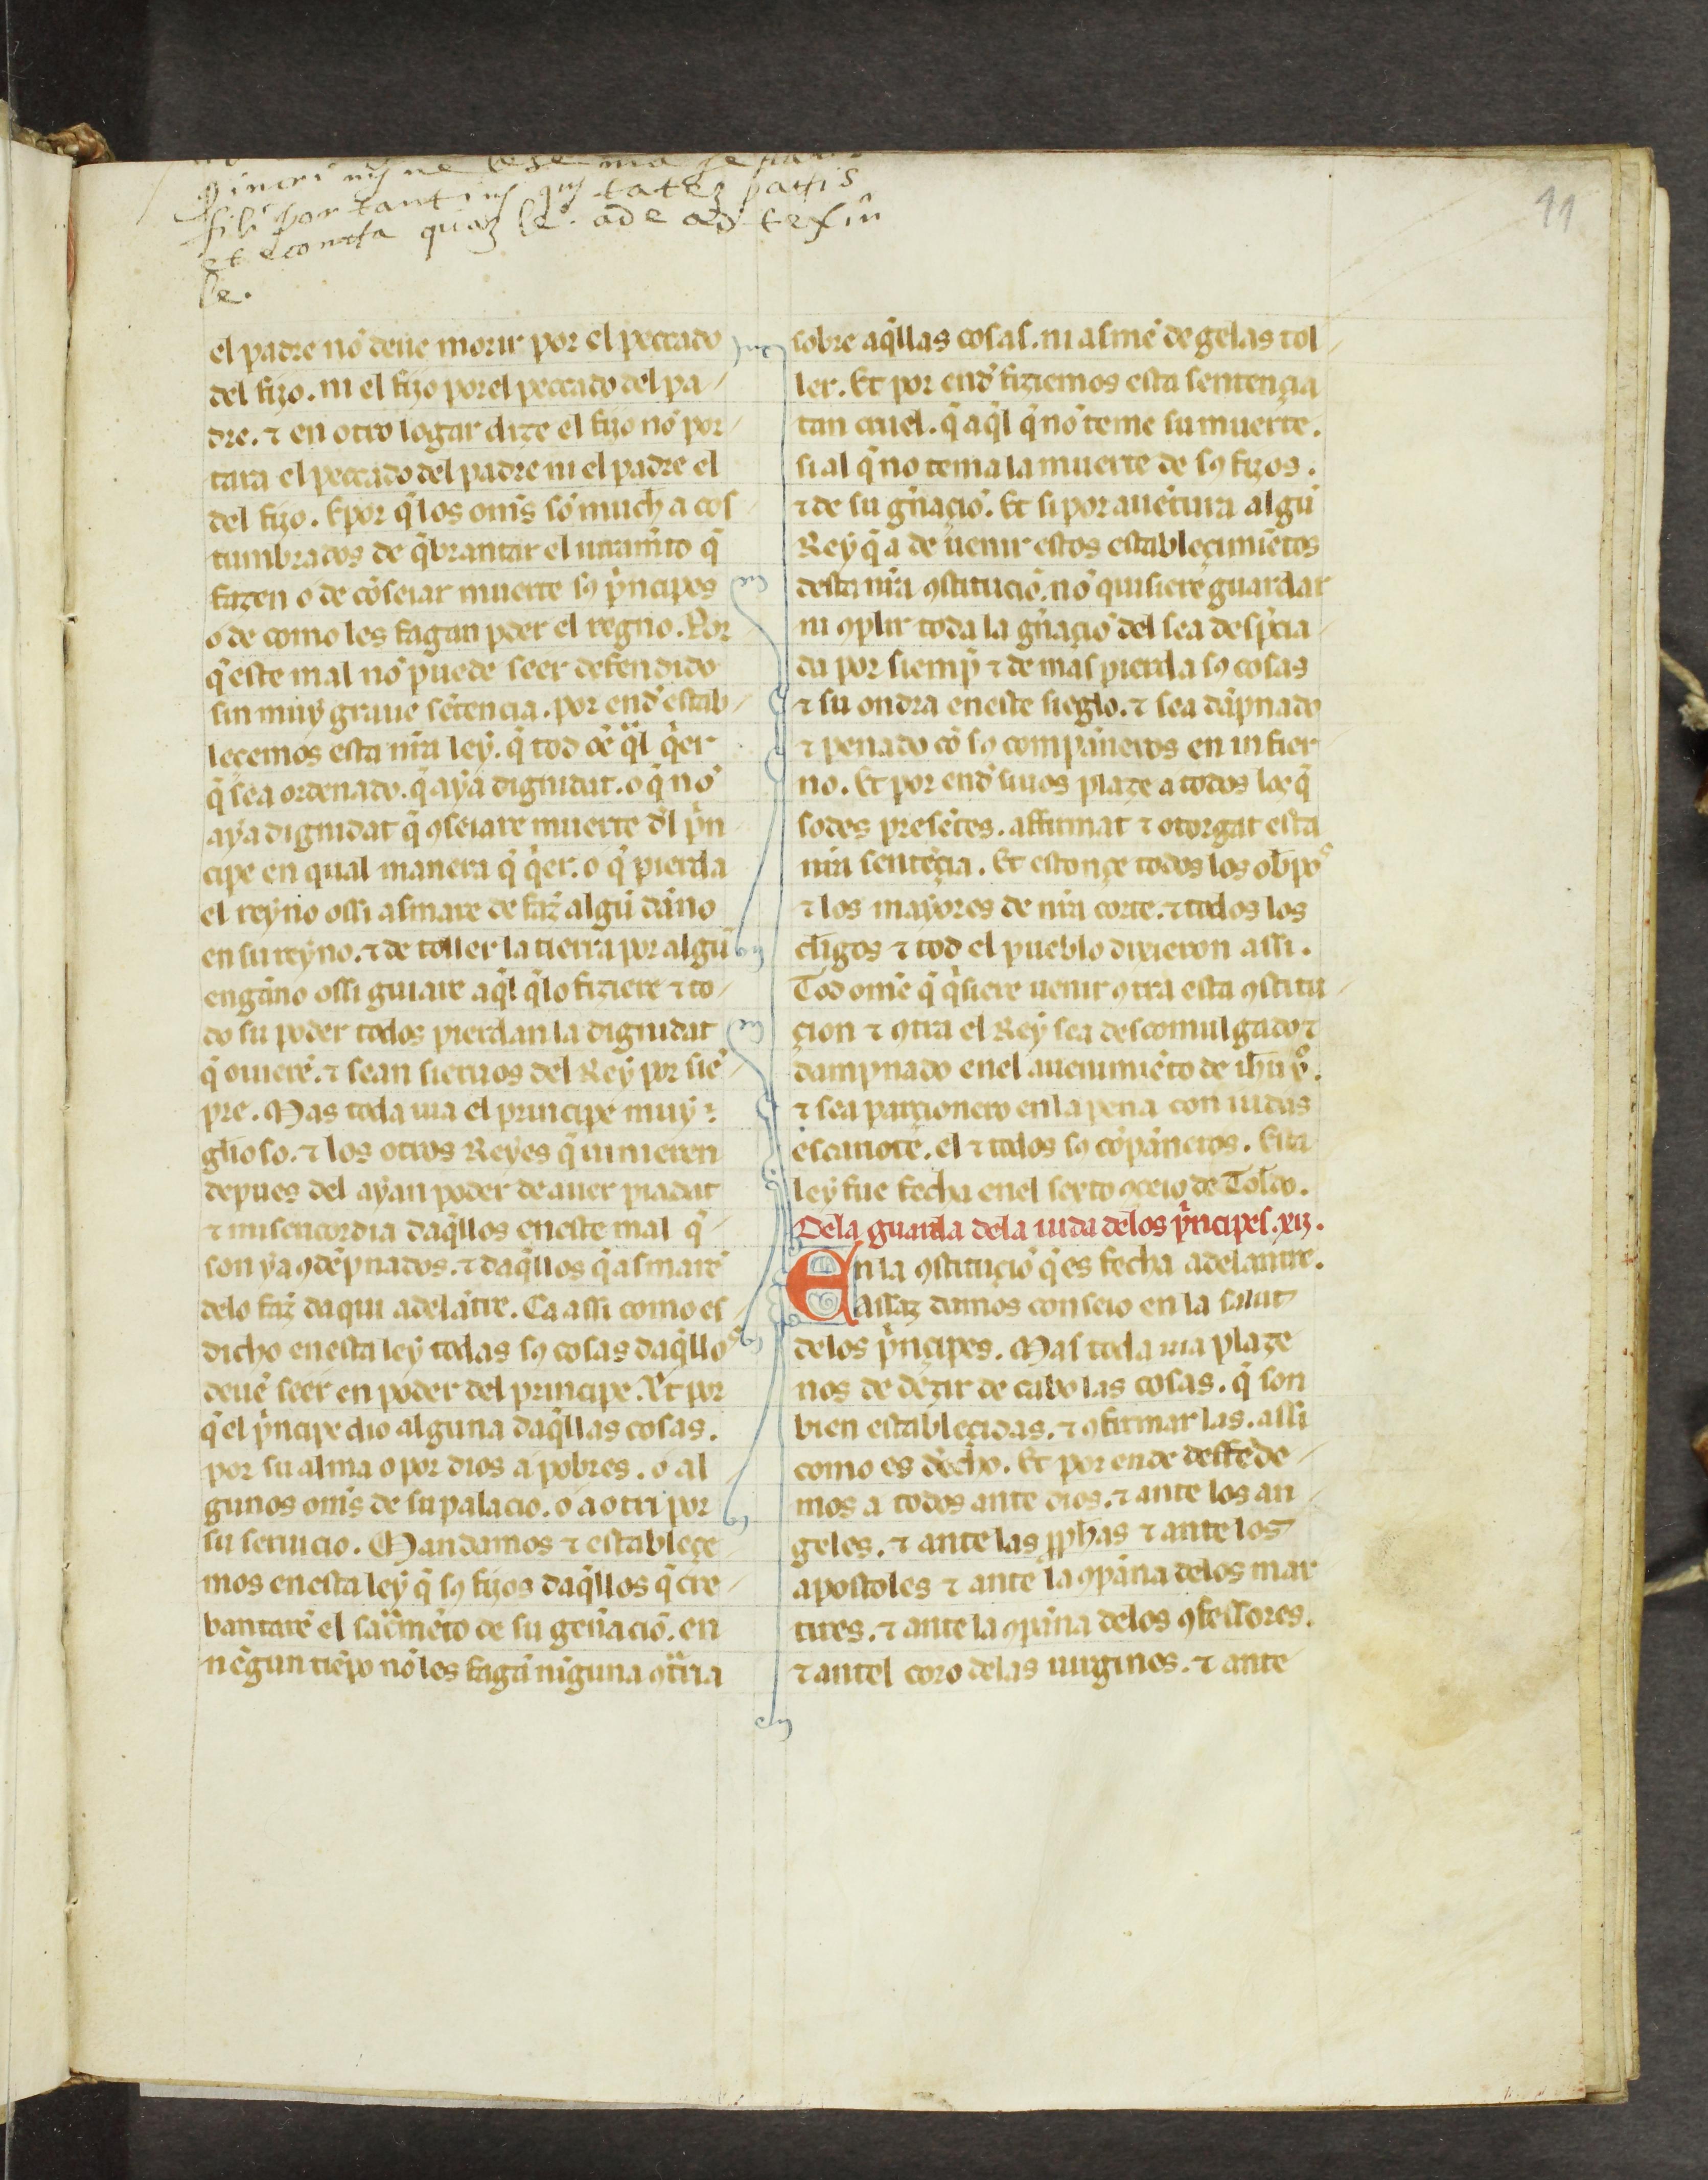 11
et econtra quaz le. ade ad textū
le.
el padre nō deue morir por el peccado
del fijo. ni el fijo por el peccado del pa-
dre. ⁊ en otro logar dize el fijo nō por-
tara el peccado del padre ni el padre el
del fijo. E por q̄ los om̄s sō much a cos
tumbrados de q̄brantar el iuramīto q̄
fazen o de cōseiar muerte sꝯ p̄ncipes
o de como les fagan ꝑder el regno. Por
q̄ este mal nō puede seer defendido
sin muy graue sētencia. por end̄ estab-
leçemos esta nr̄a ley. q̄ tod oē q̄l q̄er
q̄ sea ordenado. q̄ aya dignidat. o q̄ nō
aya dignidat q̄ ꝯseiare muerte d̄l p̄n
cipe en qual manera q̄ q̄er. o q̄ pierda
el reyno ossi asmare de faz̄ algū dāno
en su reyno. ⁊ de toller la tierra por algū
engāno ossi guiare aq̄l q̄ lo fiziere ⁊ to-
do su poder todos pierdan la dignidat
q̄ ouierē. ⁊ sean sieruos del Rey por siē
pre. Mas toda uia el principe muy
gl̄ioso. ⁊ los otros Reyes q̄ uinieren
depues del ayan poder de auer piadat
⁊ misericordia daq̄llos en este mal q̄
son ya ꝯdēpnados. ⁊ daq̄llos q̄ asmarē
delo faz̄ daqui adelātre. Ca assi como es
dicho en esta ley todas sꝯ cosas daq̄llos
deuē seer en poder del principe. Et por
q̄ el p̄ncipe dio alguna daq̄llas cosas.
por su alma o por dios a pobres. o al
gunos om̄s de su palacio. o a otri por
su seruicio. Mandamos ⁊ estableçe
mos en esta ley q̄ sꝯ fijos daq̄llos q̄ cre-
bantarē el sac̄mēto de su gen̄aciō. en
nēgun tiēpo nō les fagā niguna ꝯtr̄ia
sobre aq̄llas cosas. ni asmē de gelas tol
ler. Et por end̄ fiziemos esta sentençia
tan cruel. q̄ aq̄l q̄ nō teme su muerte.
si al q̄ no tema la muerte de sꝯ fijos.
⁊ de su gn̄açiō. Et si por auētura algū
Rey q̄ a de uenir estos estableçimiētos
desta nr̄a ꝯstituciō. nō quisiere guardar
ni ꝯplir toda la gn̄açiō del sea desp̄cia
da por siemp̄ ⁊ de mas pierda sꝯ cosas
⁊ su ondra en este sieglo. ⁊ sea dāpnado
⁊ penado cō sꝯ compāneros en infier
no. Et por end̄ si uos plaze a todos los q̄
sodes presētes. affirmat ⁊ otorgat esta
nr̄a sentēçia. Et estonçe todos los ob̄pos
⁊ los mayores de nr̄a corte. ⁊ todos los
cl̄igos ⁊ tod el pueblo dixieron assi.
Tod omē q̄ q̄siere uenir ꝯtra esta ꝯstitu
çion ⁊ ꝯtra el Rey sea descomulgado ⁊
dampnado enel auenimiēto de ih̄u xº.
⁊ sea parçionero en la pena con iudas
escariote. el ⁊ todos sꝯ cōpāneros. Esta
ley fue fecha enel sexto ꝯceio de Toldo.
Dela guarda dela uida delos p̄ncipes. xij.
En la ꝯstituçiō q̄ es fecha adelantre.
assaz damos conseio en la salut
delos p̄nçipes. Mas toda uia plaze
nos de dezir de cabo las cosas. q̄ son
bien estableçidas. ⁊ ꝯfirmar las. assi
como es d̄echo. Et por ende deffēde-
mos a todos ante dios. ⁊ ante los an
geles. ⁊ ante las ꝓph̄as ⁊ ante los
apostoles ⁊ ante la ꝯpāna delos mar
tires. ⁊ ante la ꝯpāna delos ꝯfessores.
⁊ antel coro delas uirgines. ⁊ ante